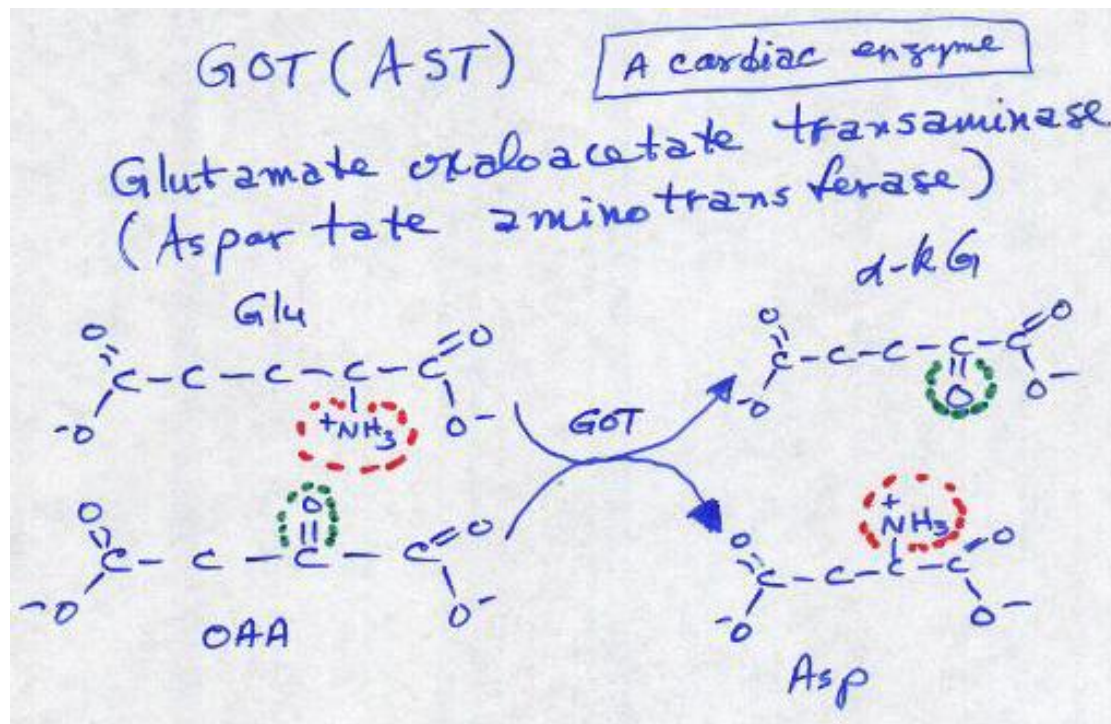 GOT (AST)
A cardiac enzyme
Glutamate oxaloacetate transaminase
(Aspartate aminotransferase)
Glu
α-kG
O
C-C-C-C-C
O
-O
+NH3
O-
GOT
O
C-C-C-C-C
O
-O
O
O-
O
O
C-C-C-C
O
-O
O-
OAA
+
NH3
O
C-C-C-C
O
-O
O-
Asp